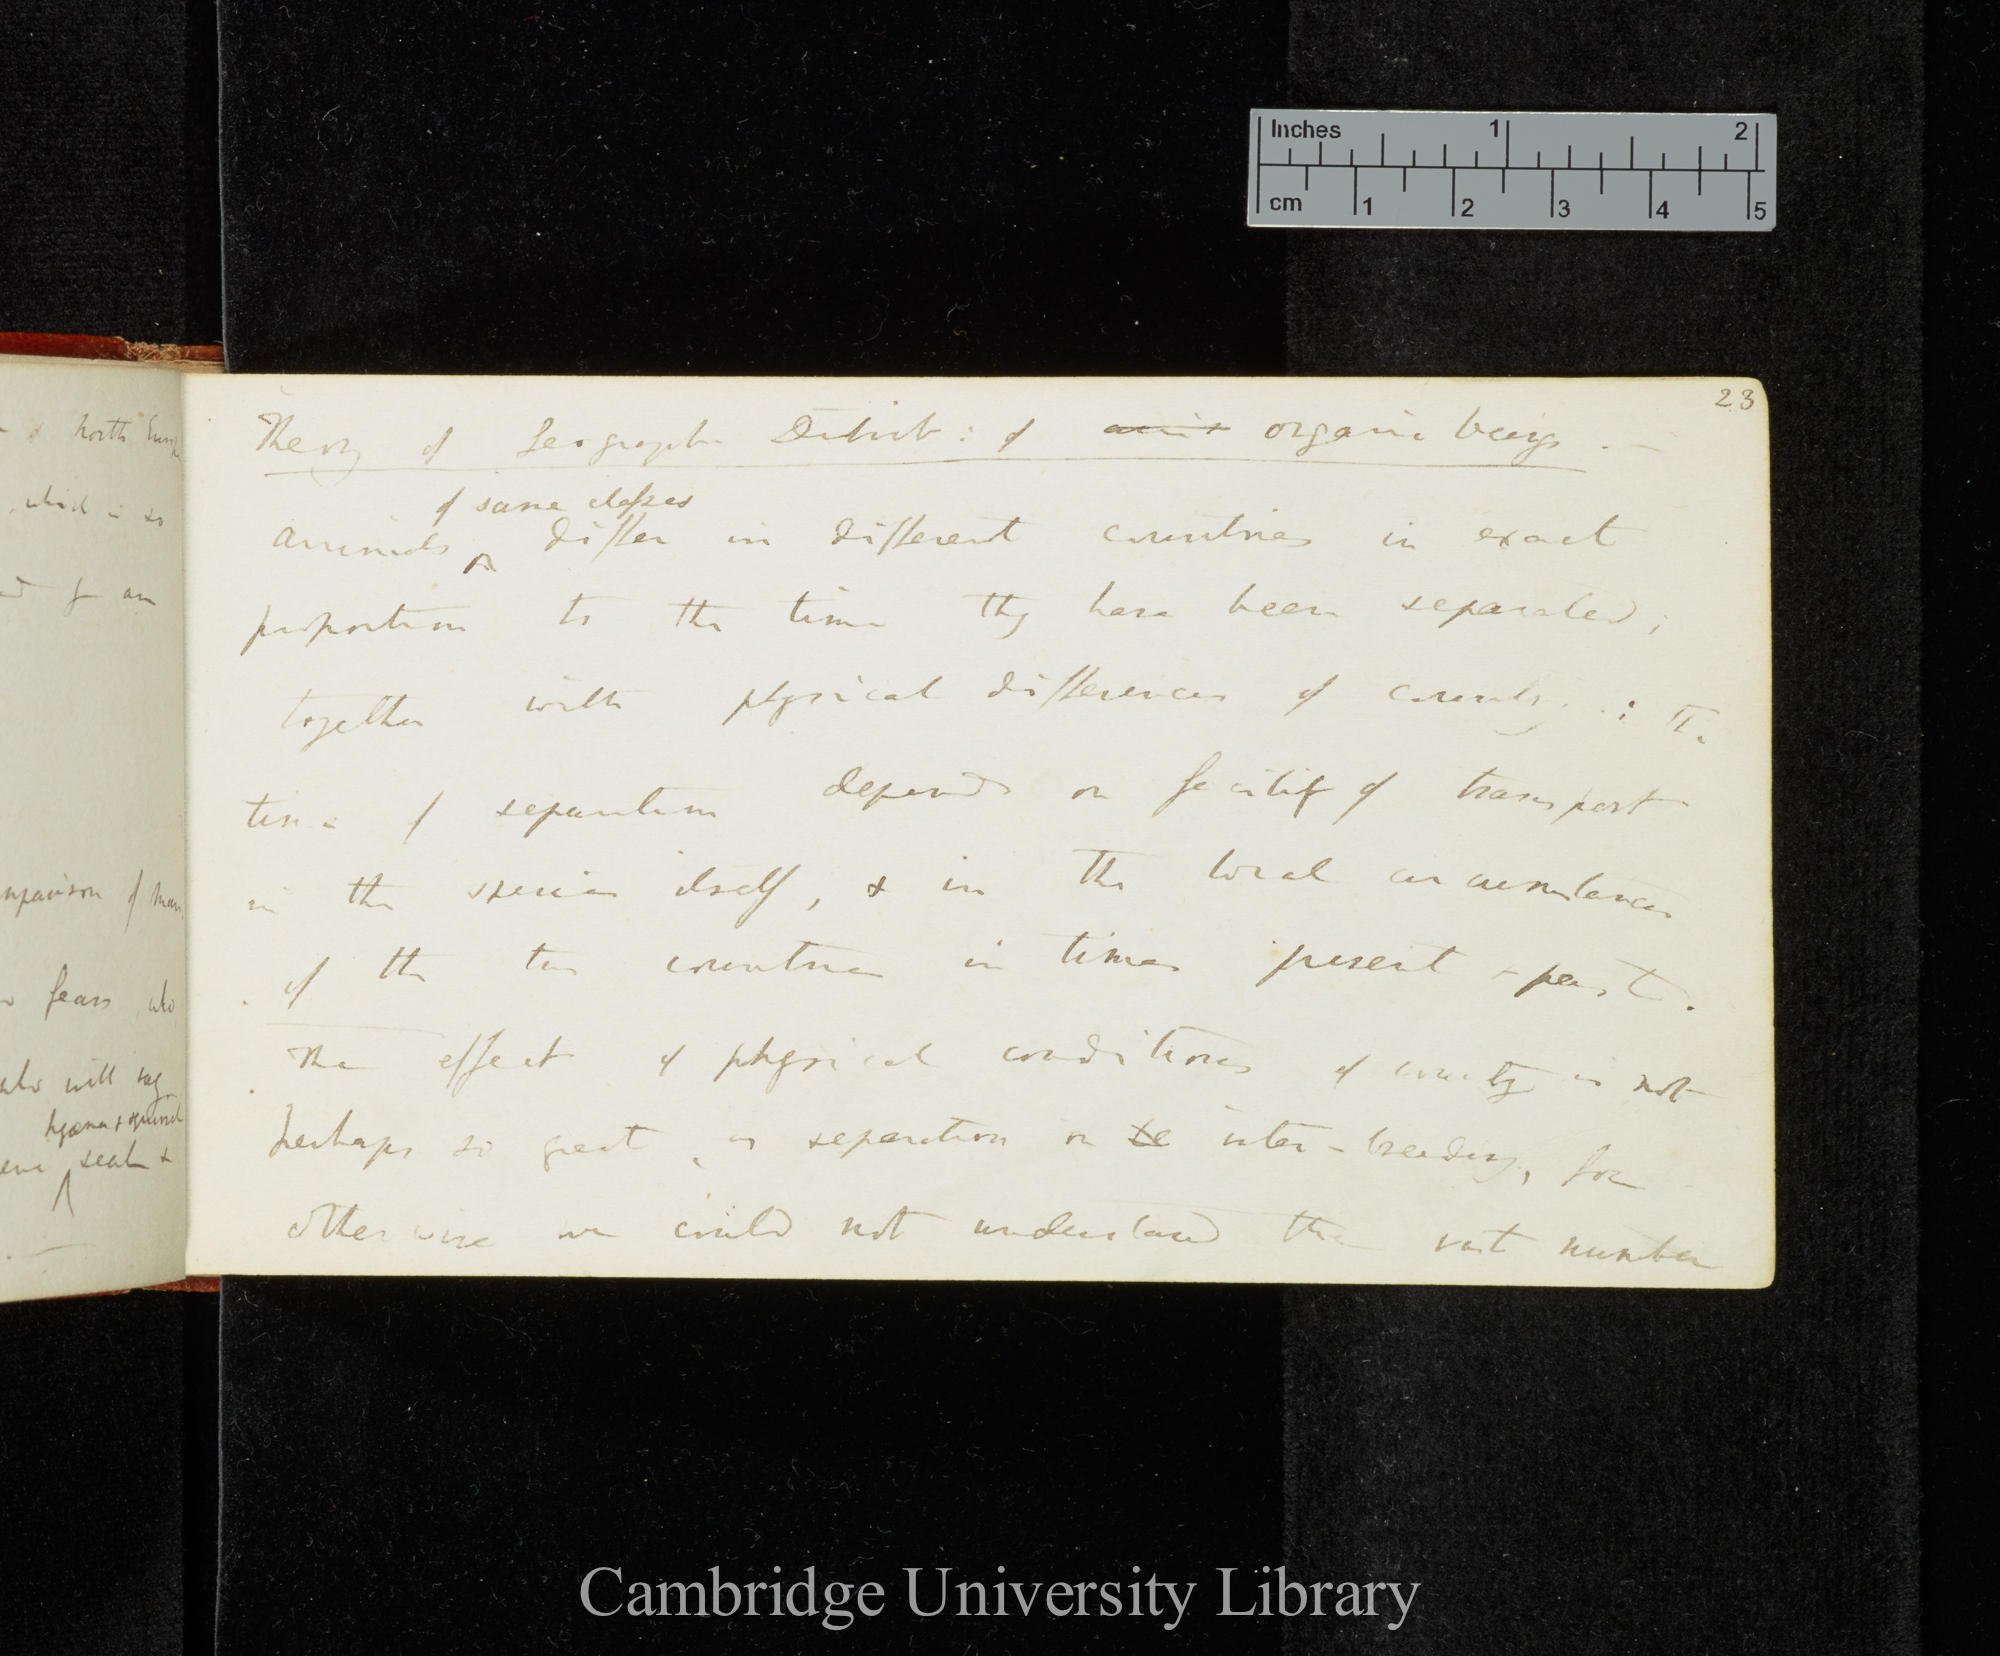 North Europe
which is so
for an
comparison of man
fears who
who will say
hyaena & squirrel
seal &
Inches 1 2
cm 1 2 3 4 5
23
Theory of Geograph. Distrib: of organic beings. —
of same classes
animals ^ differ in different countries in exact
proportion to the time they have been separated;
together with physical differences of country: The
time of separation depends on facility of transport
in the species itself, & in the local circumstances
of the two countries in times present & past.
The effect of physical conditions of country is not
perhaps so great, as separation on inter-breeding, for
otherwise we could not understand the vast number
Cambridge University Library